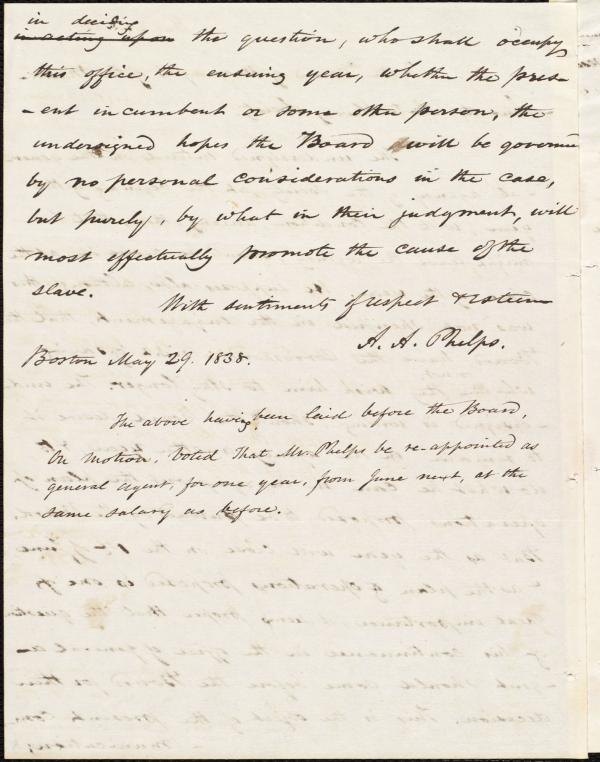 in deciding
in acting upon the question, who shall occupy
this office, the ensuing year, whether the pres-
-ent incumbent or some other person, the
undersigned hopes the Board will be governe
by no personal considerations in the case,
but purely, by what in their judgment, will
most effectually promote the cause of the
slave.
With sentiments of respect & esteem
A. A. Phelps.
Boston May 29. 1838.
The above having been laid before the Board,
On motion, Voted That Mr. Phelps be re-appointed as
general agent, for one year, from June next, at the
same salary as before.